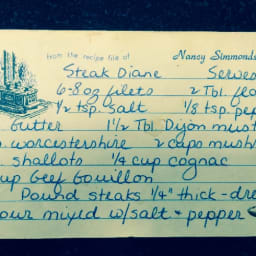 from the recipe file of Nancy Simmonds
Steak Diane Serves
6-8oz filets 2 Tbl. flo
1/2 tsp. salt 1/8 tsp. pep
butter 1 1/2 Tbl. Dijon must
worcestershire 2 cups mush
shallots 1/4 cup cognac
up beef bouillon
Pound steaks 1/4" thick - dre
our mixed w/salt + pepper